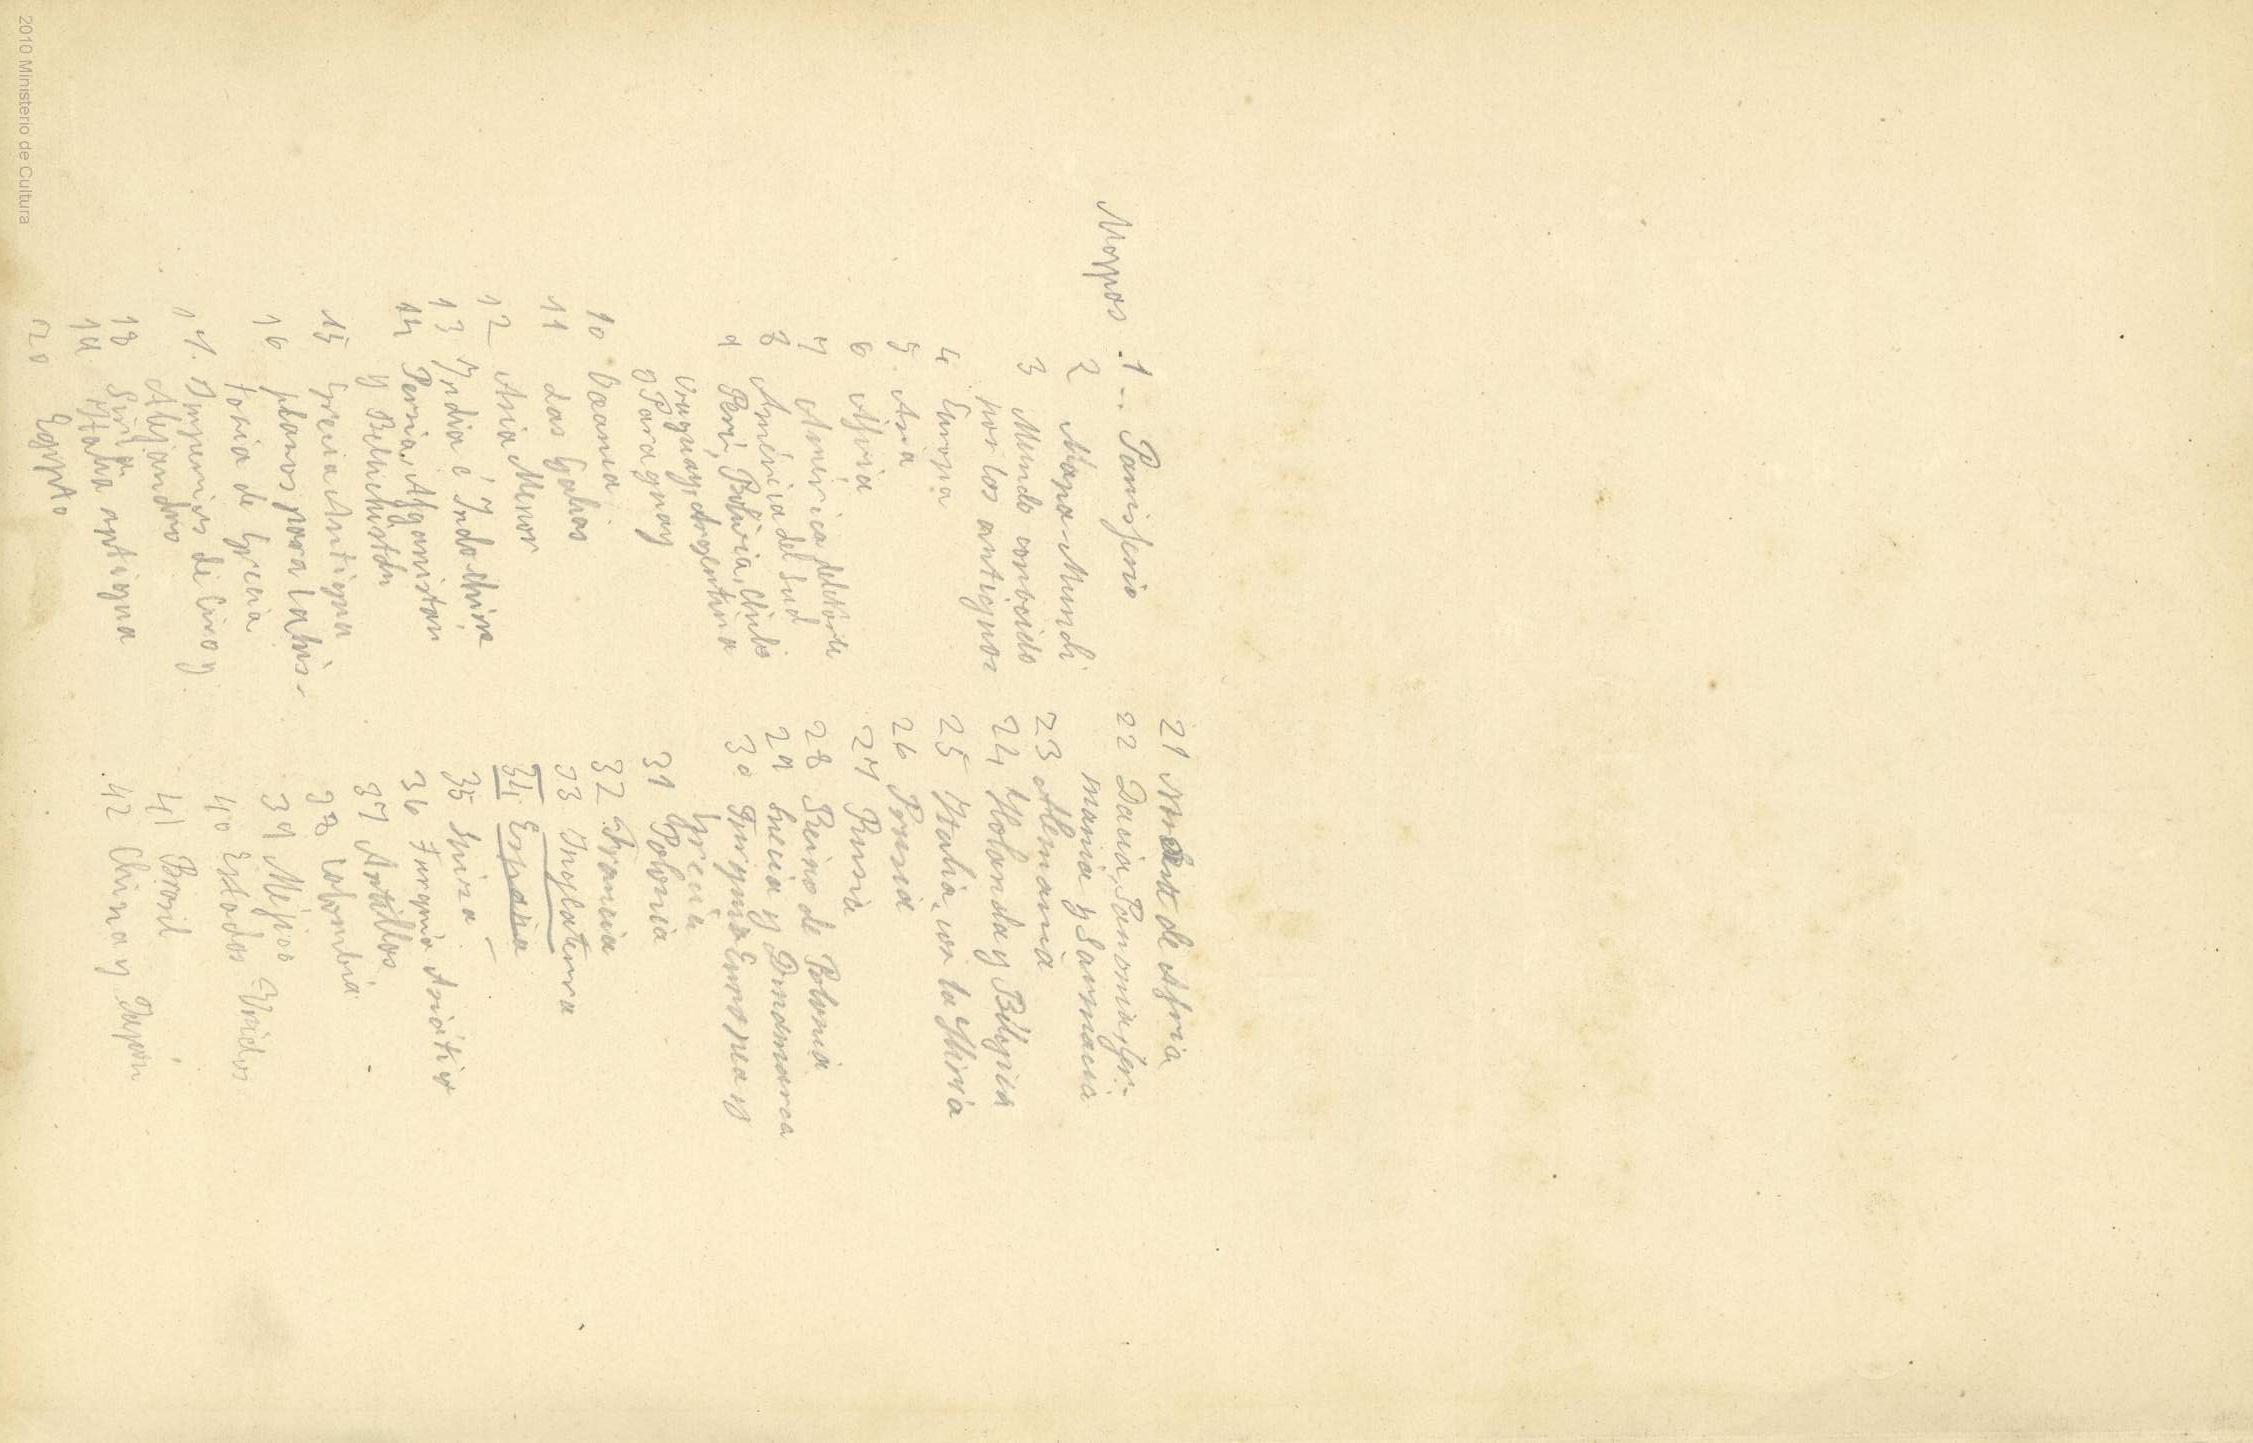 Mappas. 1 -- Panisferio
2 Mapa-Mundi
3 Mundo conocido
por los antiguos
4 Europa
5. Asia
6 Africa
7 América del Norte
8 América del Sud
9 Perú, Bolivia, Chile
Uruguay, Argentina
y Paraguay
10 Oceania
11 Las Galias
12 Asia Menor
13 India é Indo China
14 Persia, Afganistan
y Beluchistan
15 Grecia Antigua
16 planos para la his-
toria de Grecia
17. Imperios de Ciro y
Alejandro
18 Siria
19 Italia antigua
20 Egipto
21 Noreste de Africa
22 Dacia, Panonia, Ger-
mania y Sarmacia
23 Alemania
24 Holanda y Bélgica
25 Italia, con la
26 Prusia
27 Rusia
28 Reino de Polonia
29 Suecia y Dinamarca
30 Turquia Europea y
Grecia
31 Polonia
32 Francia
33 Inglaterra
34. España
35 Suiza
36 Turquia Asiática
37 Antillas
38 Colombia
39 Méjico
40 Estados Unidos
41 Brasil
42 China y Japón
2010 Ministerio de Cultura